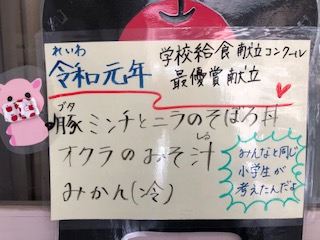 れいわ
令和元年
学校給食献立コンクール
最優賞献立
ブタ
豚ミンチとニラのそぼろ丼
しる
オクラのみそ汁
みかん(冷)
みんなと同じ
小学生が
考えたんだよ